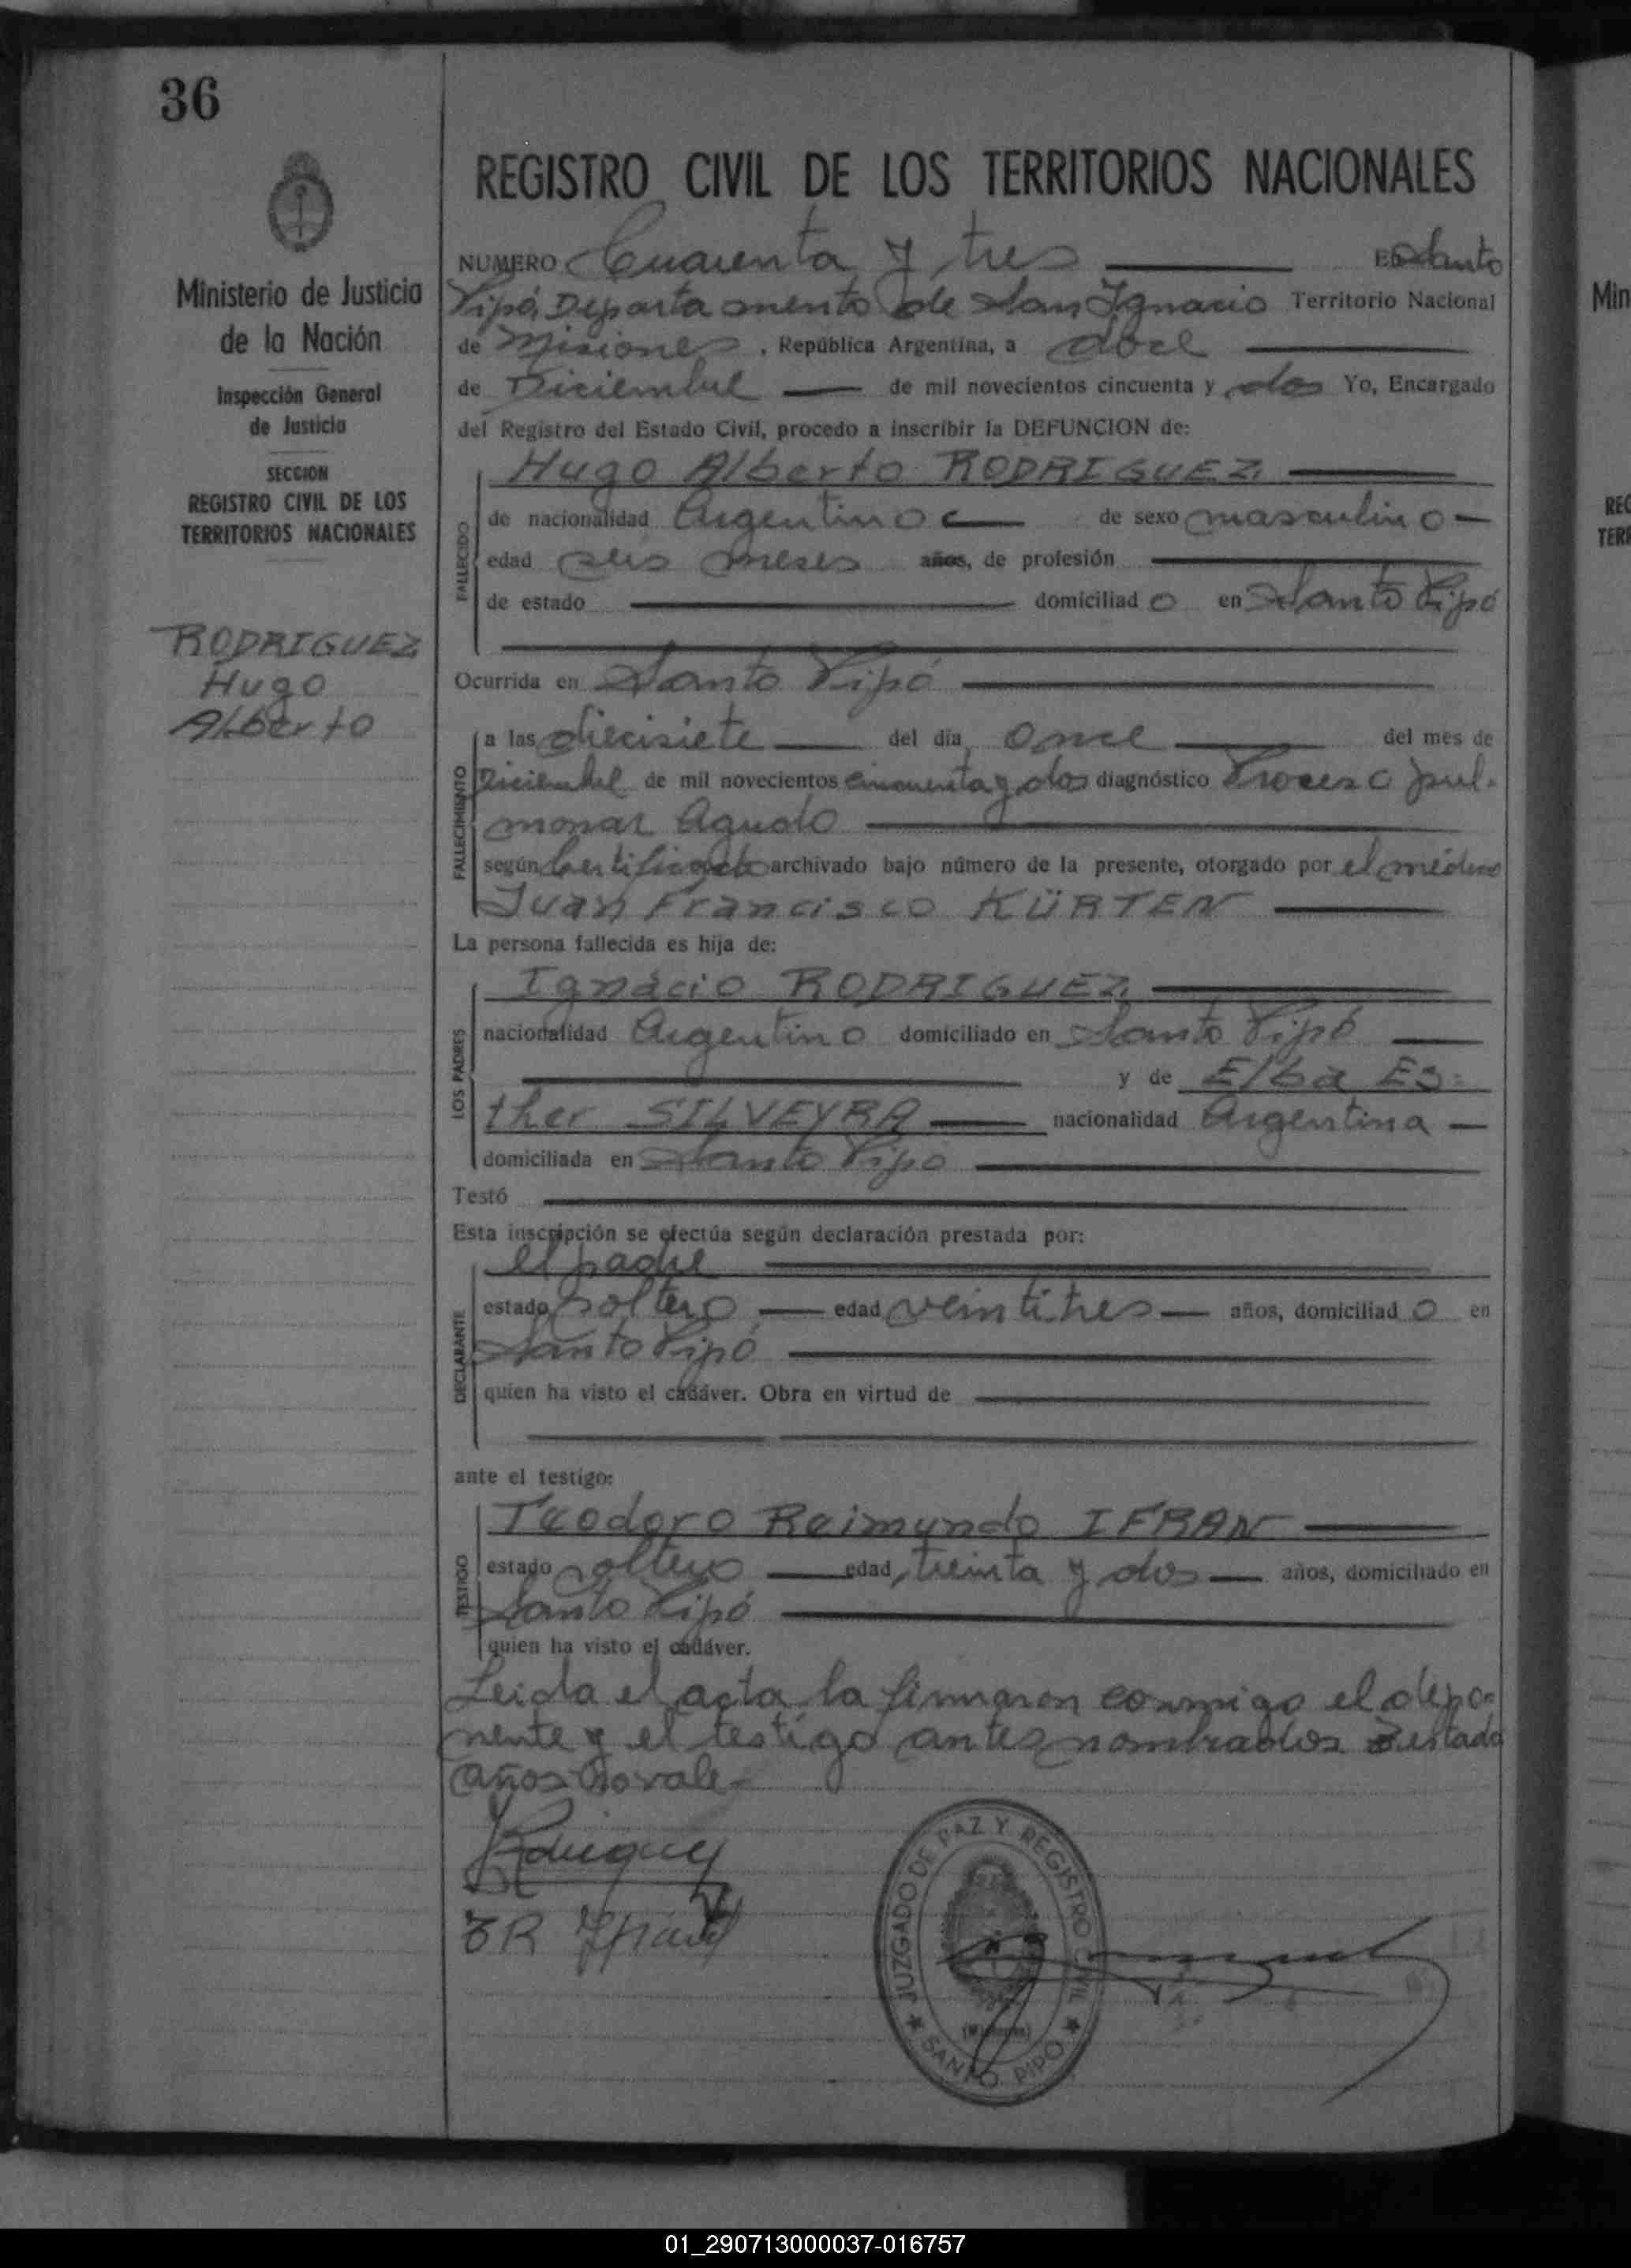 36
Ministerio de Justicia
de la Nación
Inspección General
de Justicia
SECCION
REGISTRO CIVIL DE LOS
TERRITORIOS NACIONALES
RODRIGUEZ
Hugo
Alberto
REGISTRO CIVIL DE LOS TERRITORIOS NACIONALES
NUMERO Cuarenta y tres En Santo
Pipó, Departamento de San Ignacio Territorio Nacional
de Misiones, República Argentina, a doce
de Diciembre de mil novecientos cincuenta y dos Yo, Encargado
del Registro del Estado Civil, procedo a inscribir la DEFUNCION de:
FALLECIDO
Hugo Alberto RODRIGUEZ
de nacionalidad Argentino de sexo masculino
edad seis meses años, de profesión
de estado domiciliad o en Santo Pipó
Ocurrida en Santo Pipó
FALLECIMIENTO
a las diecisiete del día once del mes de
Diciembre de mil novecientos cincuenta y dos diagnóstico Proceso pul-
monar Agudo
según Certificado archivado bajo número de la presente, otorgado por el médico
Juan Francisco KÜRTEN
La persona fallecida es hija de:
LOS PADRES
Ignacio RODRIGUEZ
nacionalidad Argentino domiciliado en Santo Pipó
y de Elba Es=
ther SILVEYRA nacionalidad Argentina
domiciliada en Santo Pipó
Testó
Esta inscripción se efectúa según declaración prestada por:
DECLARANTE
el padre
estado soltero edad veintitres años, domiciliad o en
Santo Pipó
quien ha visto el cadáver. Obra en virtud de
ante el testigo:
TESTIGO
Teodoro Reimundo IFRAN
estado soltero edad treinta y dos años, domiciliado en
Santo Pipó
quien ha visto el cadáver.
Leida el acta la firmaron conmigo el depo-
nente y el testigo antes nombrados Testado
años no vale-
JUZGADO DE PAZ Y REGISTRO CIVIL
(Misiones)
SANTO PIPO
Min
REG
TERR
01_290713000037-016757